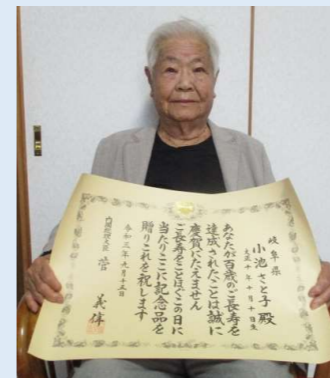 岐阜県
小池さと子殿
大正十年十月十日生
あなたが百歳のご長寿を
達成されたことは誠に
慶賀にたえません
ご長寿をことほぐこの日に
当たりここに記念品を
贈りこれを祝します
令和三年九月十五日
内閣総理大臣 菅 義偉